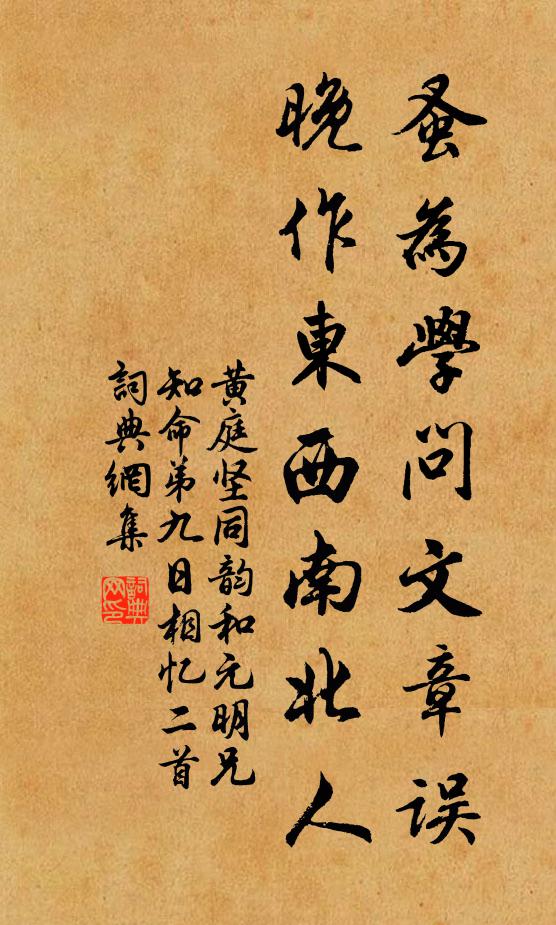 蚤為學問文章误
晚作東西南北人
黄庭坚同韵和元明兄
知命弟九日相忆二首
詞典網集
詞典
网印